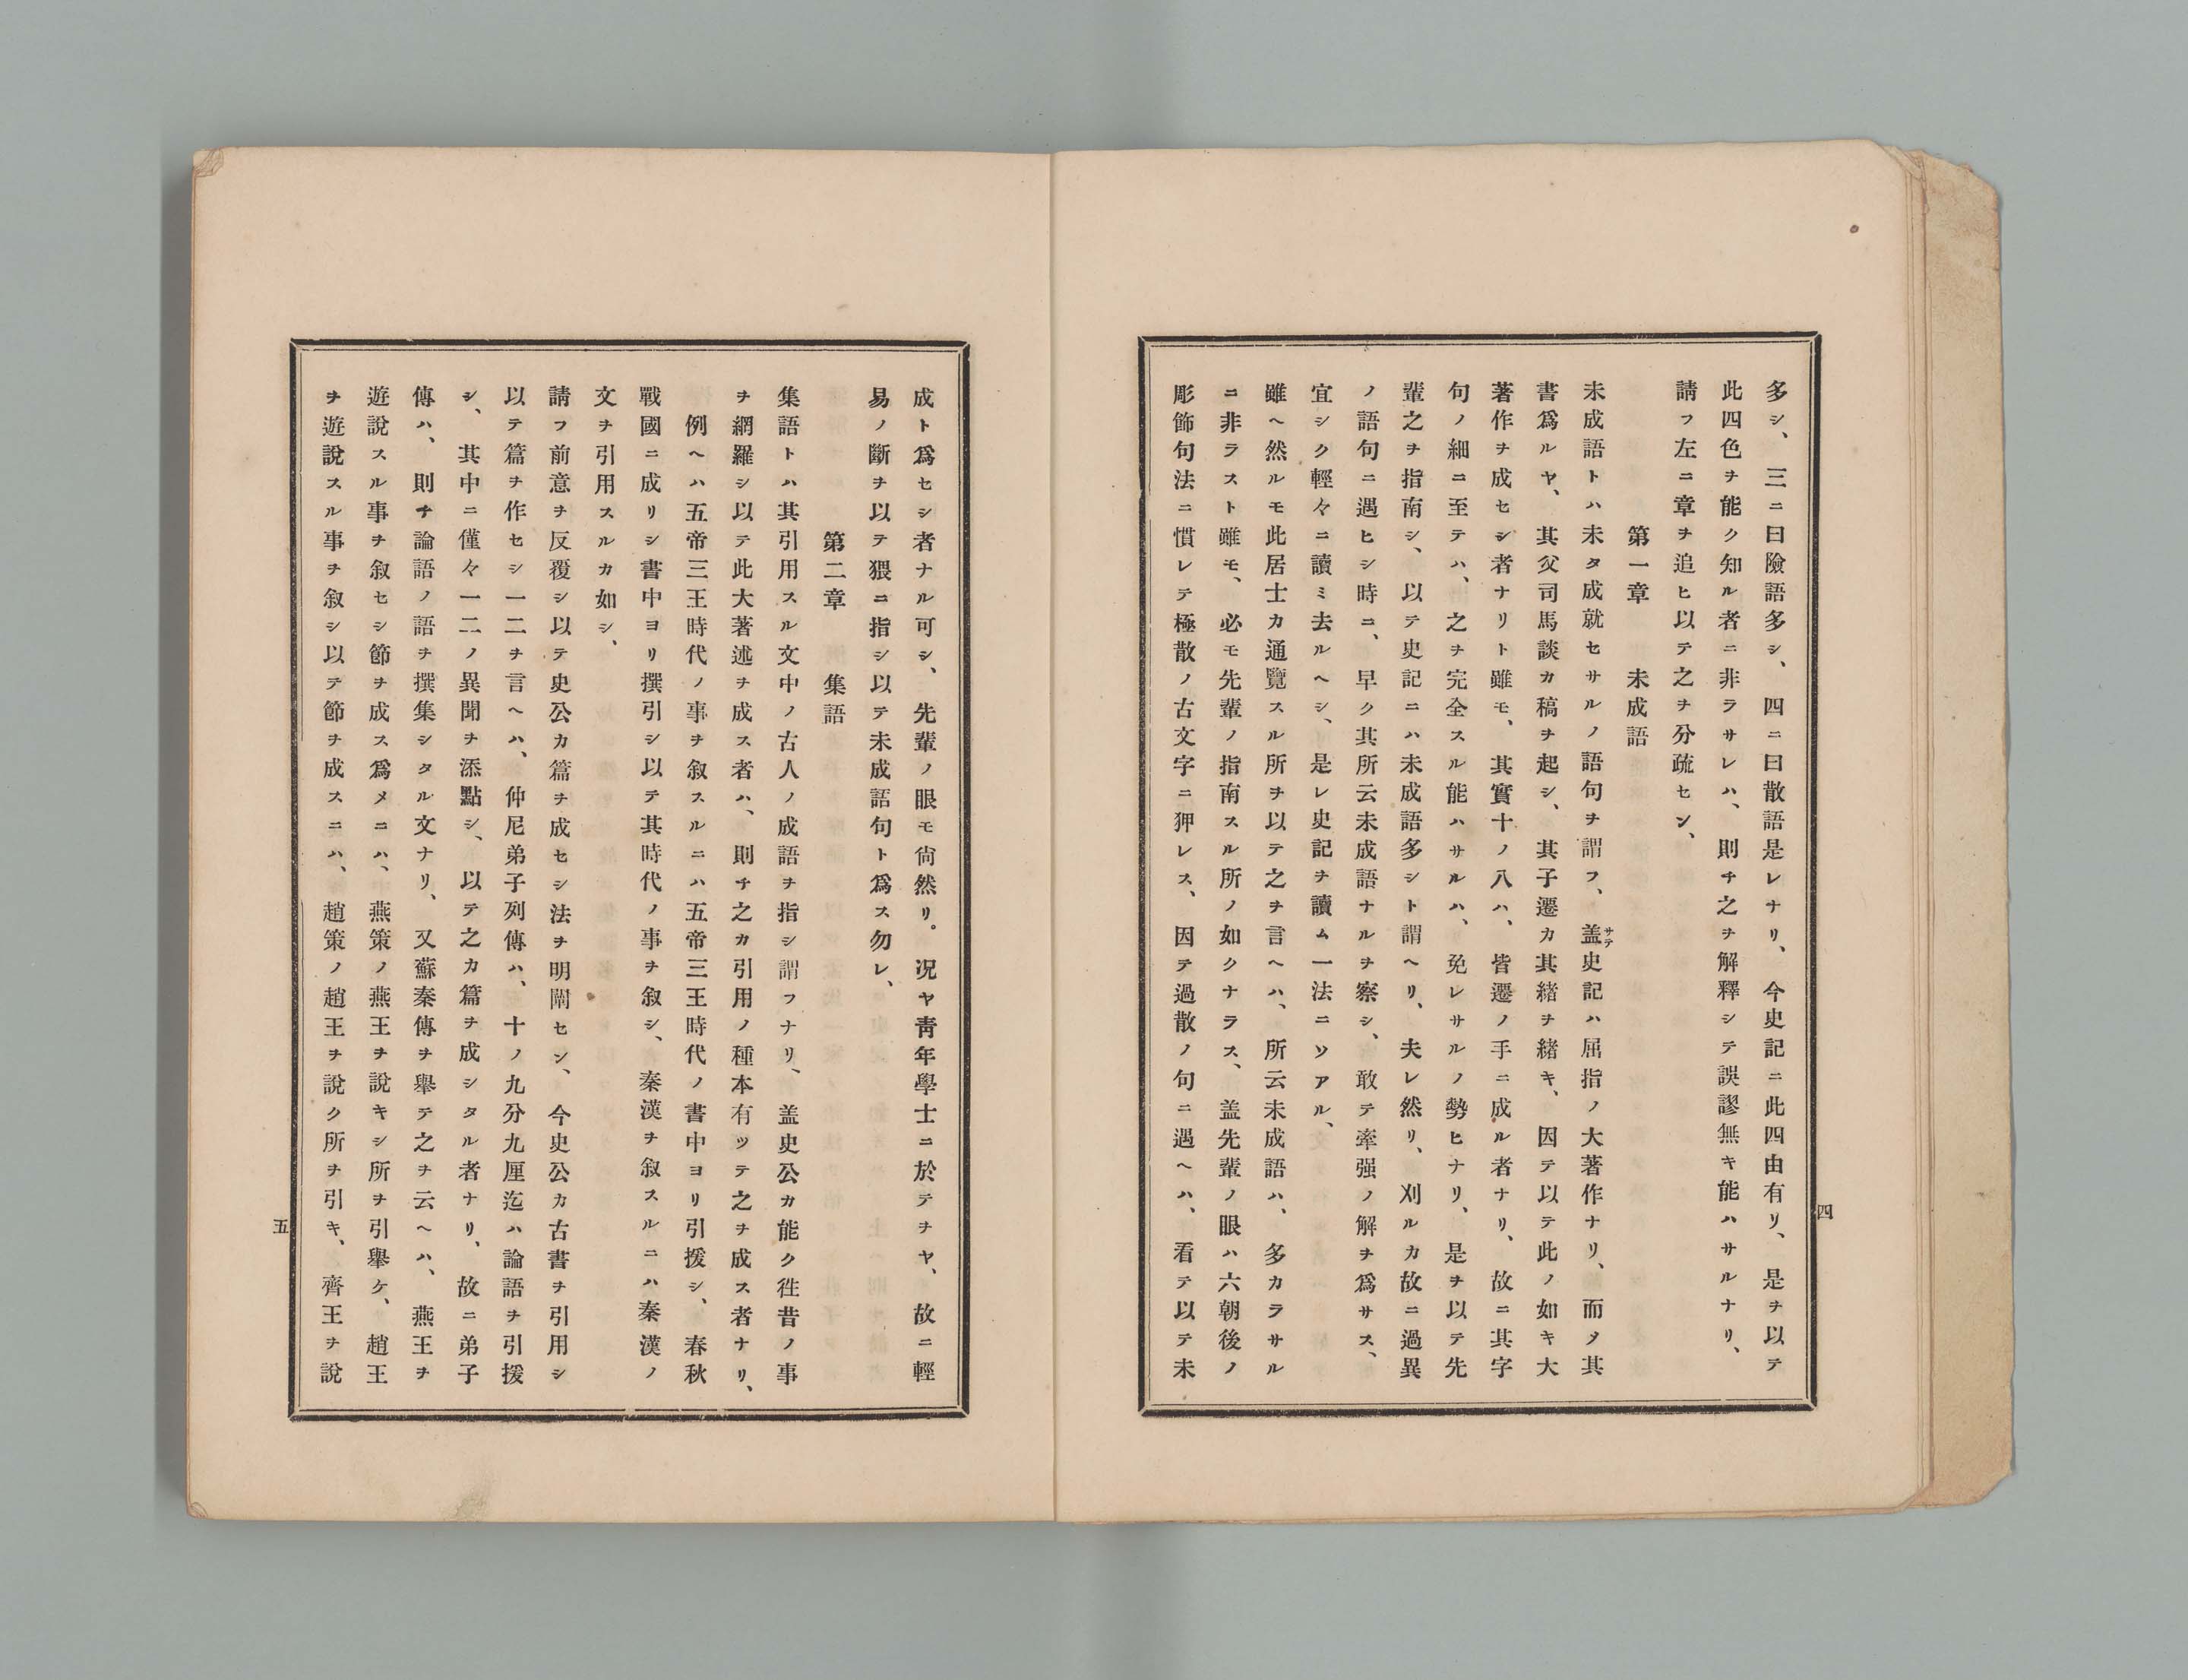 多シ、三ニ曰險語多シ、四ニ曰散語是レナリ、今史記ニ此四由有リ、是ヲ以テ
此四色ヲ能ク知ル者ニ非ラサレハ、則チ之ヲ解釋シテ誤謬無キ能ハサルナリ、
請フ左ニ章ヲ追ヒ以テ之ヲ分疏セン、
第一章　未成語
未成語トハ未タ成就セサルノ語句ヲ謂フ、盖サテ史記ハ屈指ノ大著作ナリ、而メ其
書爲ルヤ、其父司馬談カ稿ヲ起シ、其子遷カ其緒ヲ緒キ、因テ以テ此ノ如キ大
著作ヲ成セシ者ナリト雖モ、其實十ノ八ハ、皆遷ノ手ニ成ル者ナリ、故ニ其字
句ノ細ニ至テハ、之ヲ完全スル能ハサルハ、免レサルノ勢ヒナリ、是ヲ以テ先
輩之ヲ指南シ、以テ史記ニハ未成語多シト謂ヘリ、夫レ然リ、刈ルカ故ニ過異
ノ語句ニ遇ヒシ時ニ、早ク其所云未成語ナルヲ察シ、敢テ牽强ノ解ヲ爲サス、
宜シク輕々ニ讀ミ去ルヘシ、是レ史記ヲ讀ム一法ニソアル、
雖ヘ然ルモ此居士カ通覽スル所ヲ以テ之ヲ言ヘハ、所云未成語ハ、多カラサル
ニ非ラスト雖モ、必モ先輩ノ指南スル所ノ如クナラス、盖先輩ノ眼ハ六朝後ノ
彫飾句法ニ慣レテ極散ノ古文字ニ狎レス、因テ過散ノ句ニ遇ヘハ、看テ以テ未
四
成ト爲セシ者ナル可シ、先輩ノ眼モ尙然リ。况ヤ靑年學士ニ於テヲヤ、故ニ輕
易ノ斷ヲ以テ猥ニ指シ以テ未成語句ト爲ス勿レ、
第二章　集語
集語トハ其引用スル文中ノ古人ノ成語ヲ指シ謂フナリ、盖史公カ能ク徃昔ノ事
ヲ網羅シ以テ此大著述ヲ成ス者ハ、則チ之カ引用ノ種本有ツテ之ヲ成ス者ナリ、
例ヘハ五帝三王時代ノ事ヲ叙スルニハ五帝三王時代ノ書中ヨリ引援シ、春秋
戰國ニ成リシ書中ヨリ撰引シ以テ其時代ノ事ヲ叙シ、秦漢ヲ叙スルニハ秦漢ノ
文ヲ引用スルカ如シ、
請フ前意ヲ反覆シ以テ史公カ篇ヲ成セシ法ヲ明闡セン、今史公カ古書ヲ引用シ
以テ篇ヲ作セシ一二ヲ言ヘハ、仲尼弟子列傳ハ、十ノ九分九厘迄ハ論語ヲ引援
シ、其中ニ僅々一二ノ異聞ヲ添點シ、以テ之カ篇ヲ成シタル者ナリ、故ニ弟子
傳ハ、則チ論語ノ語ヲ撰集シタル文ナリ、又蘇秦傳ヲ擧テ之ヲ云ヘハ、燕王ヲ
遊說スル事ヲ叙セシ節ヲ成ス爲メニハ、燕策ノ燕王ヲ說キシ所ヲ引擧ケ、趙王
ヲ遊說スル事ヲ叙シ以テ節ヲ成スニハ、趙策ノ趙王ヲ說ク所ヲ引キ、齊王ヲ說
五